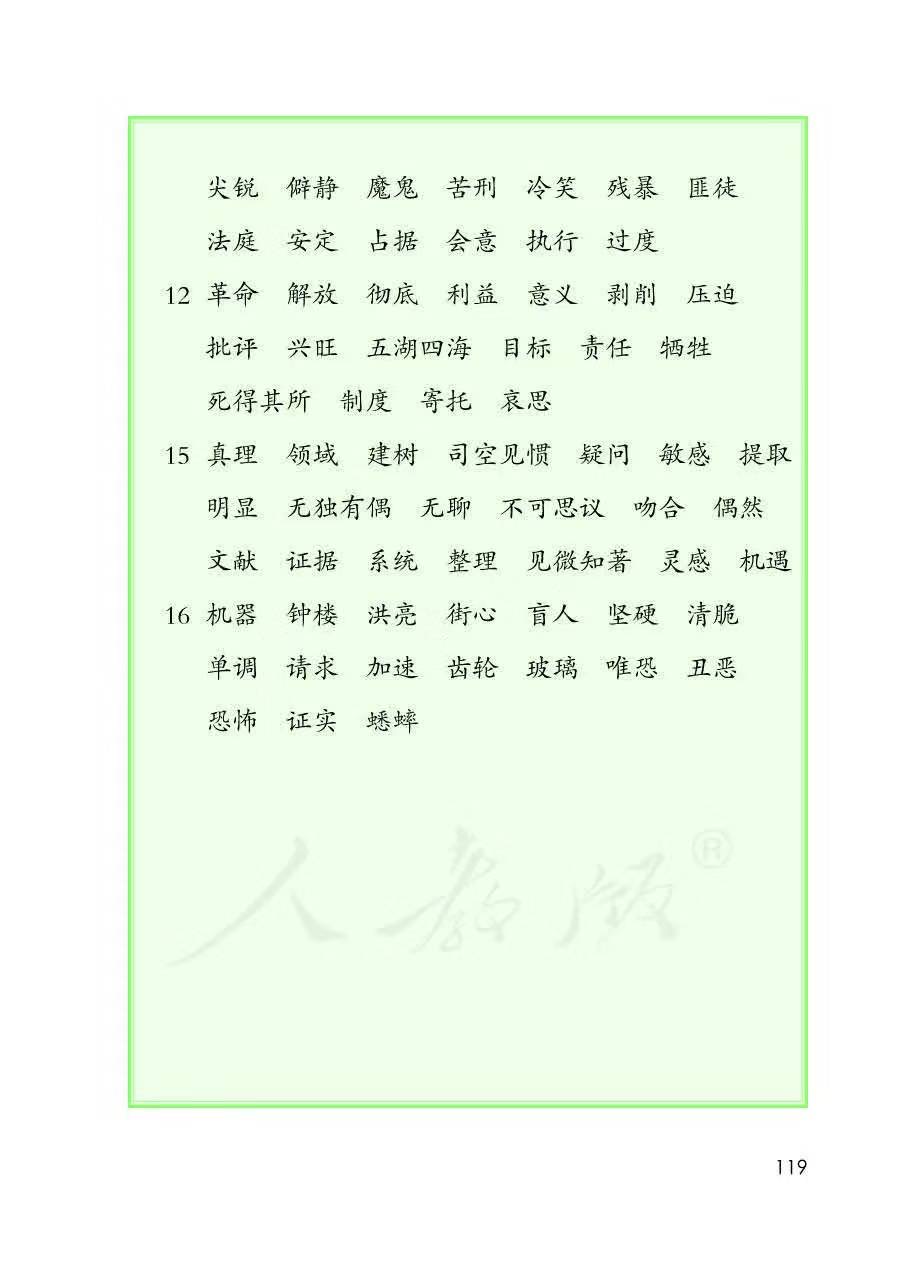 尖锐 僻静 魔鬼 苦刑 冷笑 残暴 匪徒
法庭 安定 占据 会意 执行 过度
12 革命 解放 彻底 利益 意义 剥削 压迫
批评 兴旺 五湖四海 目标 责任 牺牲
死得其所 制度 寄托 哀思
15 真理 领域 建树 司空见惯 疑问 敏感 提取
明显 无独有偶 无聊 不可思议 吻合 偶然
文献 证据 系统 整理 见微知著 灵感 机遇
16 机器 钟楼 洪亮 街心 盲人 坚硬 清脆
单调 请求 加速 齿轮 玻璃 唯恐 丑恶
恐怖 证实 蟋蟀
人教版®
119